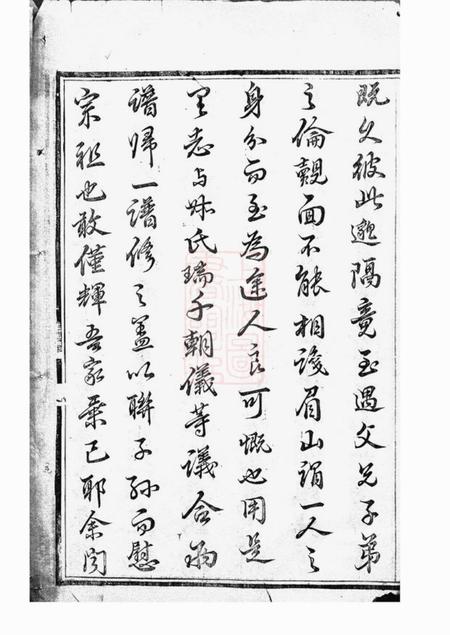 既久彼此邈隔竟至遇父兄子弟
之倫覿面不能相識眉山謂一人之
身分而至為途人良可慨也用是
与氏瑞千朝儀等議合兩
譜歸一譜修之蓋以聯子孫而慰
宗祖也敢僅輝吾家乘已耶余